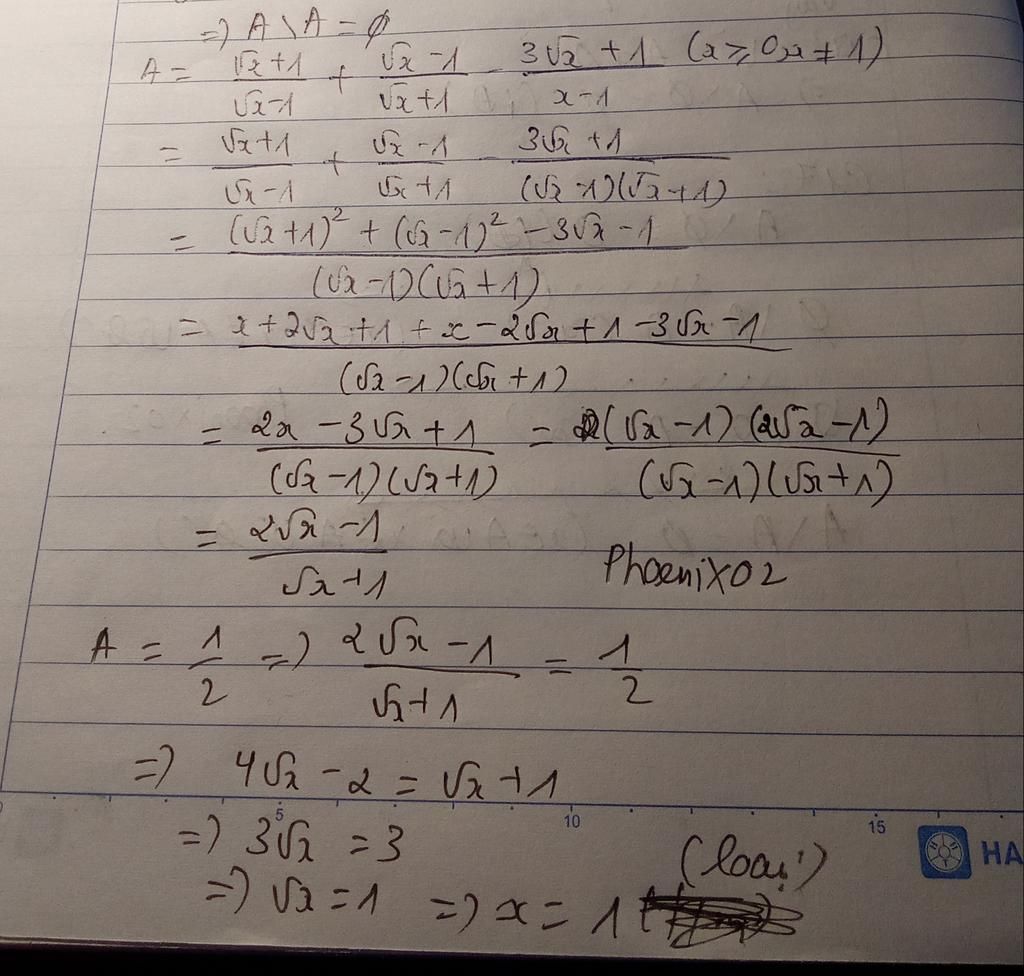 =) A \ A = ∅
A = (√x+1)/(√x-1) + (√x-1)/(√x+1) - (3√x+1)/(x-1) (x ≥ 0, x ≠ 1)
= (√x+1)/(√x-1) + (√x-1)/(√x+1) - (3√x+1)/((√x-1)(√x+1))
= ((√x+1)² + (√x-1)² - 3√x - 1)/((√x-1)(√x+1))
= (x+2√x+1+x-2√x+1-3√x-1)/((√x-1)(√x+1))
= (2x-3√x+1)/((√x-1)(√x+1)) = ((√x-1)(2√x-1))/((√x-1)(√x+1))
= (2√x-1)/(√x+1)
PhoeniX02
A = 1/2 =) (2√x-1)/(√x+1) = 1/2
=) 4√x - 2 = √x + 1
5 10 15
HA
=) 3√x = 3
=) √x = 1 =) x = 1 (loại)